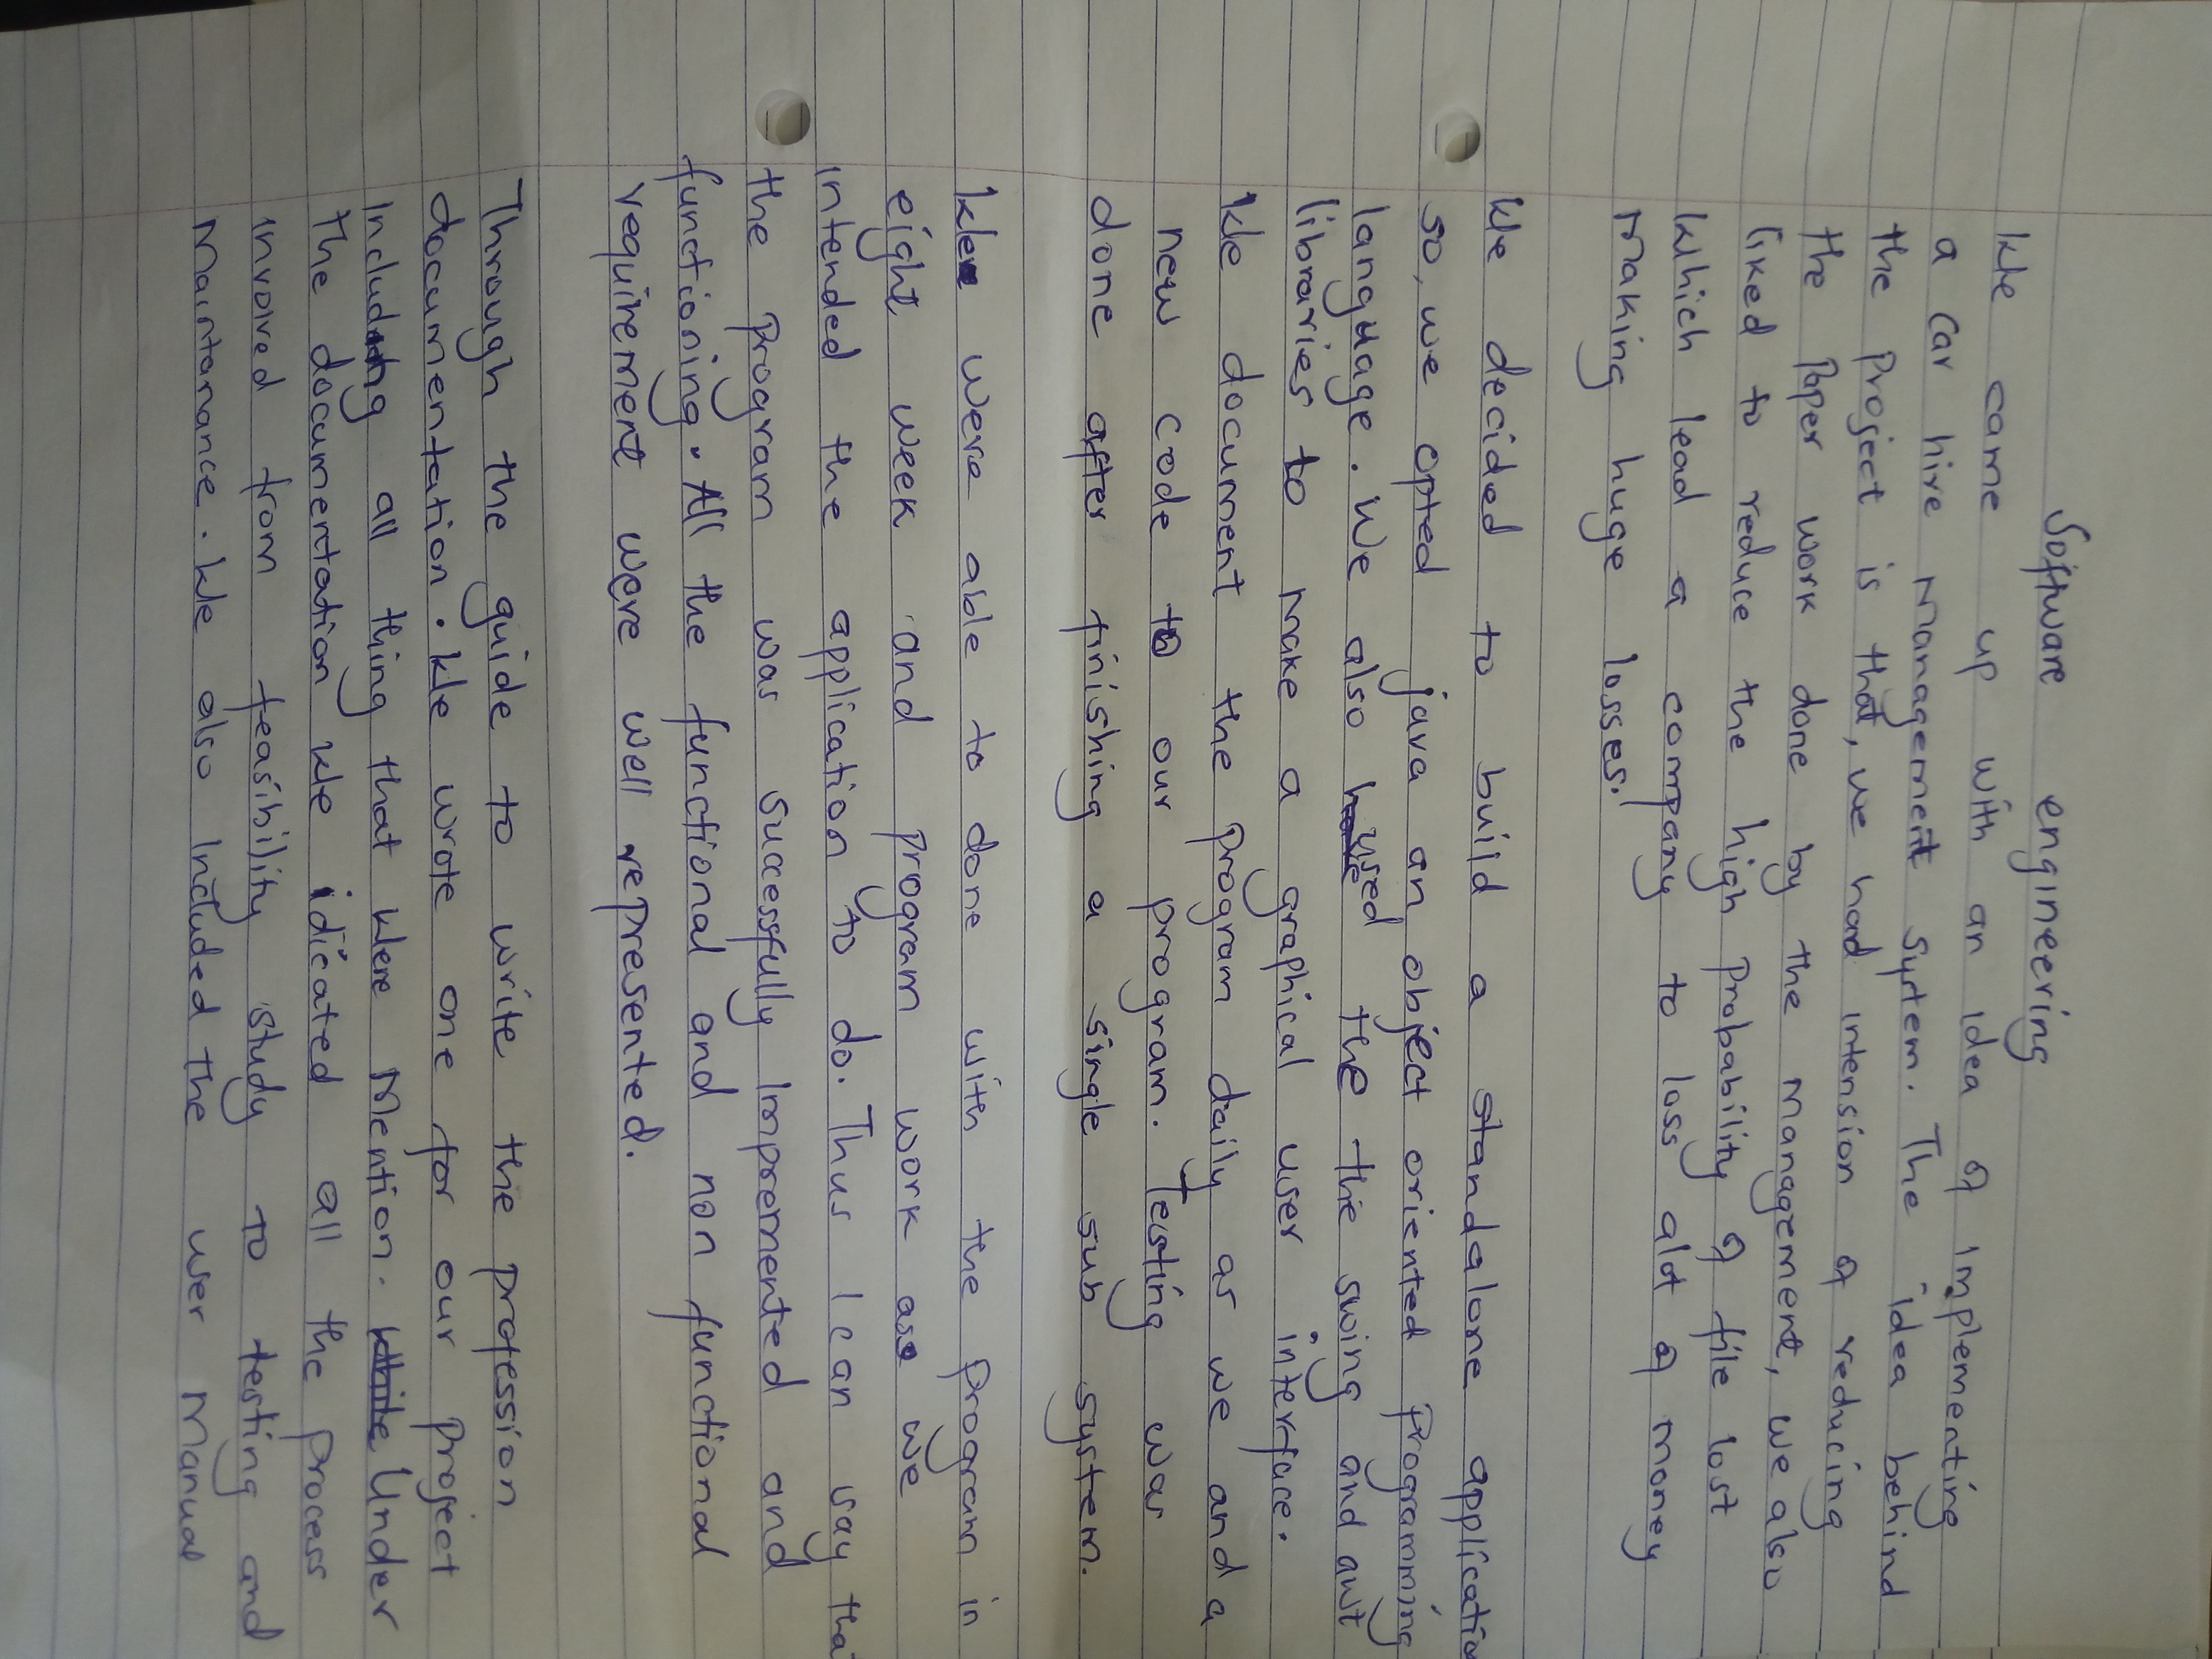 Software engineering
We came up with an idea of implementing
a car hire management system. The idea behind
the project is that, we had intension of reducing
the paper work done by the management, we also
liked to reduce the high probability of file lost
which lead a company to loss alot of money
making huge losses.
We decided to build a standalone applicatio
so, we opted java an object oriented programming
language. We also used the the swing and awt
libraries to make a graphical user interface.
We document the program daily as we and a
new code to our program. Testing was
done after finishing a single sub system.
We were able to done with the program in
eight week and program work as we
intended the application to do. Thus I can say tha
the program was successfully impremented and
functioning. All the functional and non functional
requirement were well represented.
Through the guide to write the profession
documentation. We wrote one for our project
including all thing that were mention. Under
the documentation we idicated all the process
involved from feasibility study to testing and
maintanance. We also included the user manual